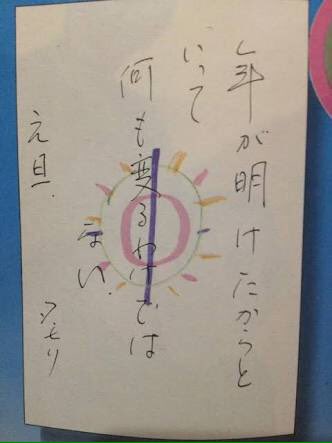 年が明けたからと
いって
何も変るわけでは
ない.
元旦.
タモリ